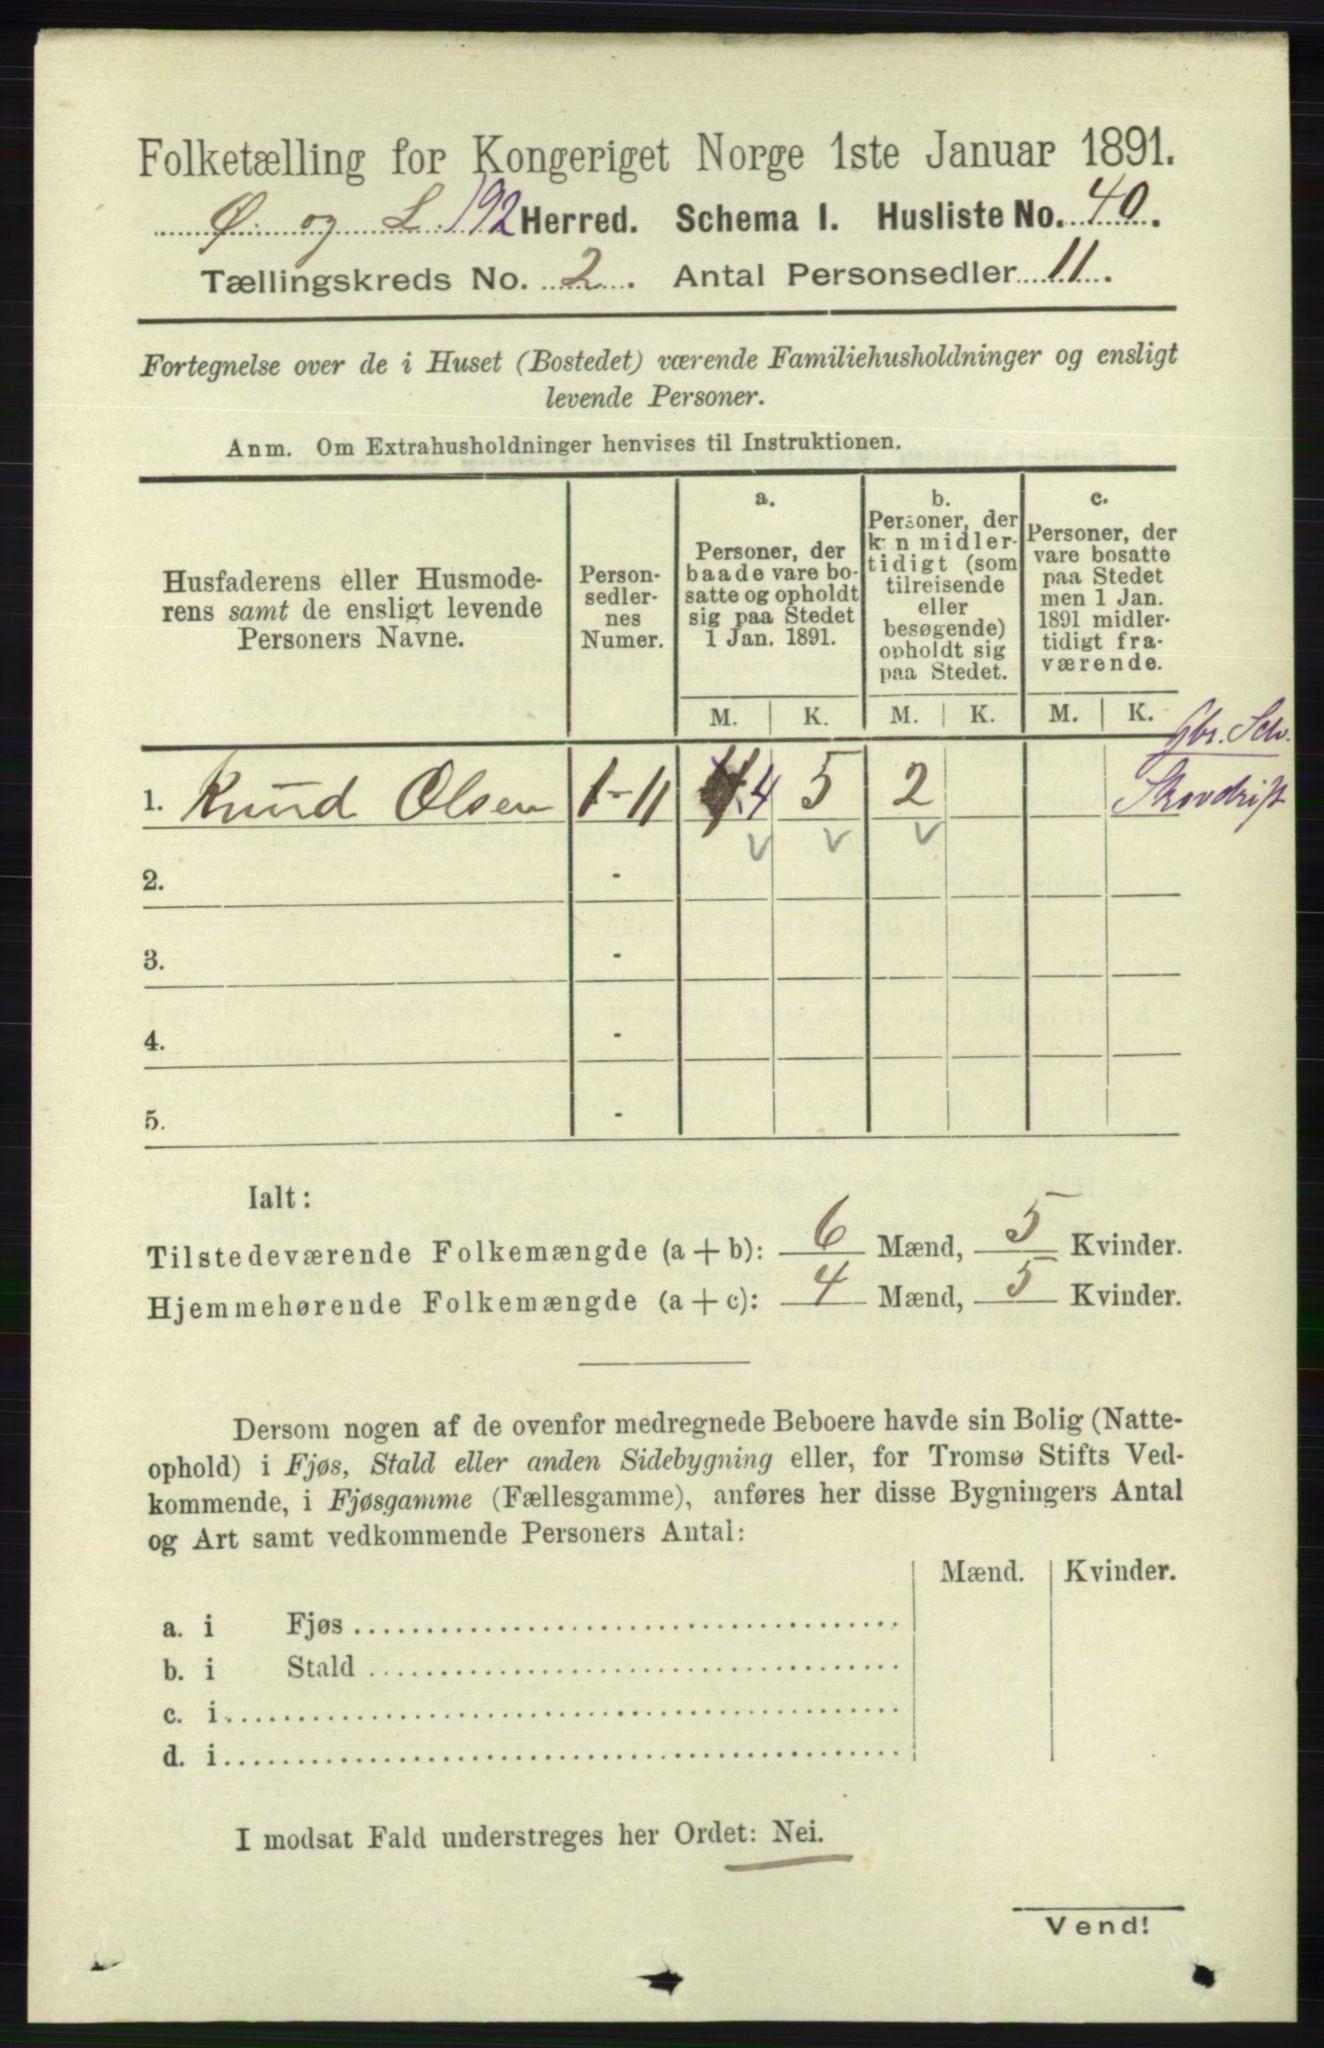 Folketælling for Kongeriget Norge 1ste Januar 1891.
Ø. og L. 192 Herred. Schema I. Husliste No. 40.
Tællingskreds No. 2. Antal Personsedler 11.
Fortegnelse over de i Huset (Bostedet) værende Familiehusholdninger og ensligt
levende Personer.
Anm. Om Extrahusholdninger henvises til Instruktionen.
Husfaderens eller Husmode-
rens samt de ensligt levende
Personers Navne.
Person-
sedler-
nes
Numer.
a.
Personer, der
baade vare bo-
satte og opholdt
sig paa Stedet
1 Jan. 1891.
b.
Personer, der
kun midler-
tidigt (som
tilreisende
eller
besøgende)
opholdt sig
paa Stedet.
c.
Personer, der
vare bosatte
paa Stedet
men 1 Jan.
1891 midler-
tidigt fra-
værende.
M. K. M. K. M. K.
Gbr. Selv.
1. Knud Olsen 1-11 4 5 2 Skovdrift
2. -
3. -
4. -
5. -
Ialt:
Tilstedeværende Folkemængde (a + b): 6 Mænd, 5 Kvinder.
Hjemmehørende Folkemængde (a + c): 4 Mænd, 5 Kvinder.
Dersom nogen af de ovenfor medregnede Beboere havde sin Bolig (Natte-
ophold) i Fjøs, Stald eller anden Sidebygning eller, for Tromsø Stifts Ved-
kommende, i Fjøsgamme (Fællesgamme), anføres her disse Bygningers Antal
og Art samt vedkommende Personers Antal:
Mænd. Kvinder.
a. i Fjøs
b. i Stald
c. i
d. i
I modsat Fald understreges her Ordet: Nei.
Vend!